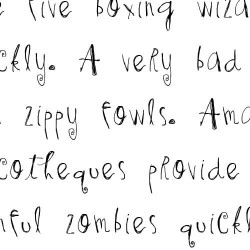 five boxing wiza
ckly. A very bad
zippy fowls. Ama
cotheques provide
nful zombies quickl